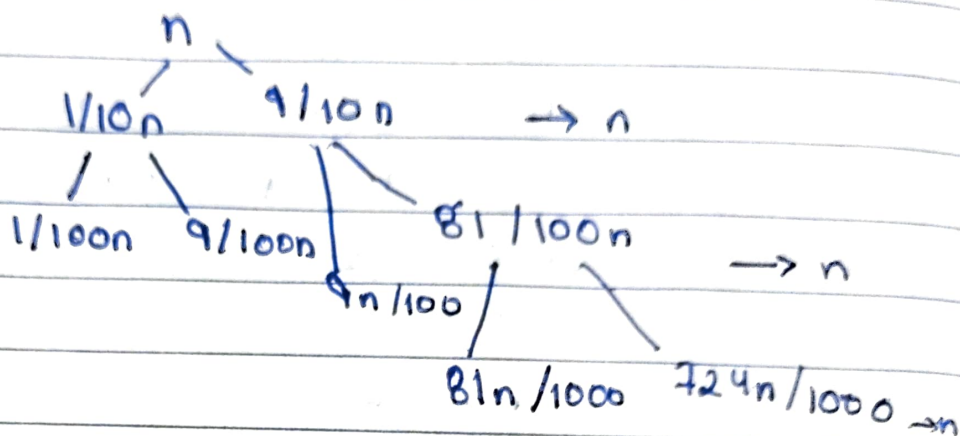 n
1/10n 9/10n → n
1/100n 9/100n 81/100n → n
9n/100
81n/1000 724n/1000 →n